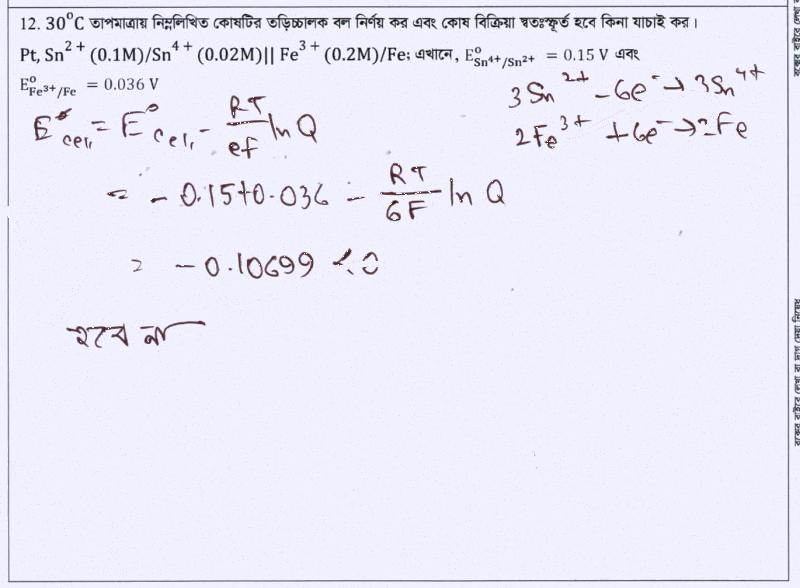 12. 30°C তাপমাত্রায় নিম্নলিখিত কোষটির তড়িচ্চালক বল নির্ণয় কর এবং কোষ বিক্রিয়া স্বতঃস্ফূর্ত হবে কিনা যাচাই কর।
Pt, Sn²⁺ (0.1M)/Sn⁴⁺ (0.02M)|| Fe³⁺ (0.2M)/Fe; এখানে, E°Sn⁴⁺/Sn²⁺ = 0.15 V এবং
E°Fe³⁺/Fe = 0.036 V
3Sn²⁺ - 6e⁻ → 3Sn⁴⁺
2Fe³⁺ + 6e⁻ → 2Fe
E cell = E° cell - RT/eF ln Q
= - 0.15+0.036 - RT/6F ln Q
= - 0.10699 < 0
হবে না